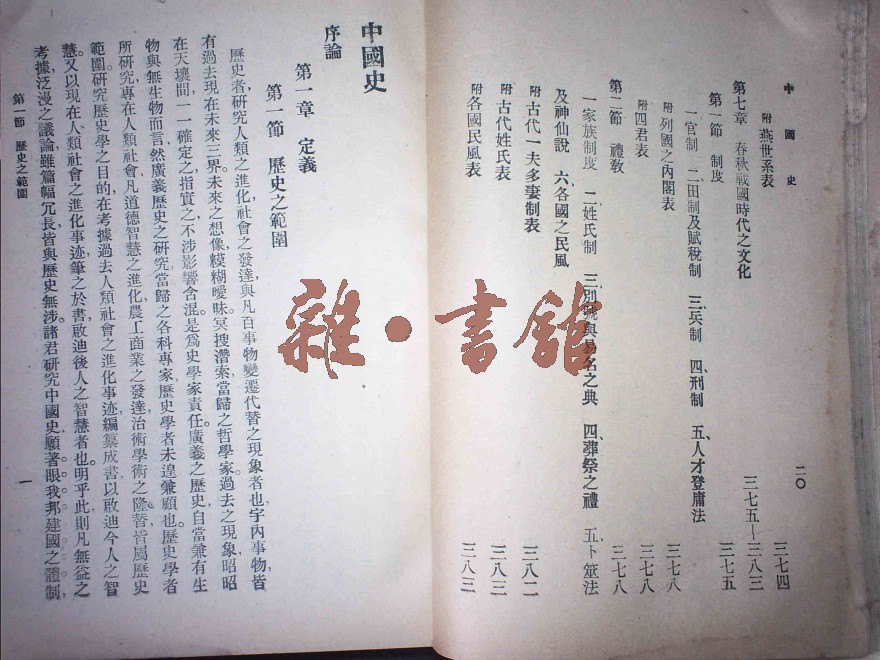 中國史
二〇
附 燕世系表 三七四
第七章 春秋戰國時代之文化 三七五—三八三
第一節 制度 三七五
一、官制 二、田制及賦稅制 三、兵制 四、刑制 五、人才登庸法
附 列國之內閣表 三七八
附 四君表 三七八
第二節 禮敎 三七八
一、家族制度 二、姓氏制 三、別號與易名之典 四、葬祭之禮 五、卜筮法
及神仙說 六、各國之民風
附 古代一夫多妻制表 三八二
附 古代姓氏表 三八三
附 各國民風表 三八三
中國史
序論
第一章 定義
第一節 歷史之範圍
歷史者，硏究人類之進化，社會之發達，與凡百事物變遷代替之現象者也，宇內事物，皆
有過去現在未來三界。未來之想像，糢糊曖昧。冥搜潛索，當歸之哲學家。過去之現象，昭昭
在天壤間，一一確定之，指實之，不涉影響含混。是爲史學家責任。廣義之歷史，自當兼有生
物與無生物而言，然廣義歷史之硏究，當歸之各科專家，歷史學者，未遑兼顧也。歷史學者
所硏究，專在人類社會，凡道德智慧之進化，農工商業之發達，治術學術之隆替，皆屬歷史
範圍。硏究歷史學之目的，在考據過去人類社會之進化事迹，編纂成書，以敢迪今人之智
慧。又以現在人類社會之進化事迹，筆之於書，敢迪後人之智慧者也。明乎此，則凡無益之
考據，泛漫之議論，雖篇幅冗長，皆與歷史無涉。諸君硏究中國史，願著眼我邦建國之體制，
第一節 歷史之範圍
一
雜·書舘